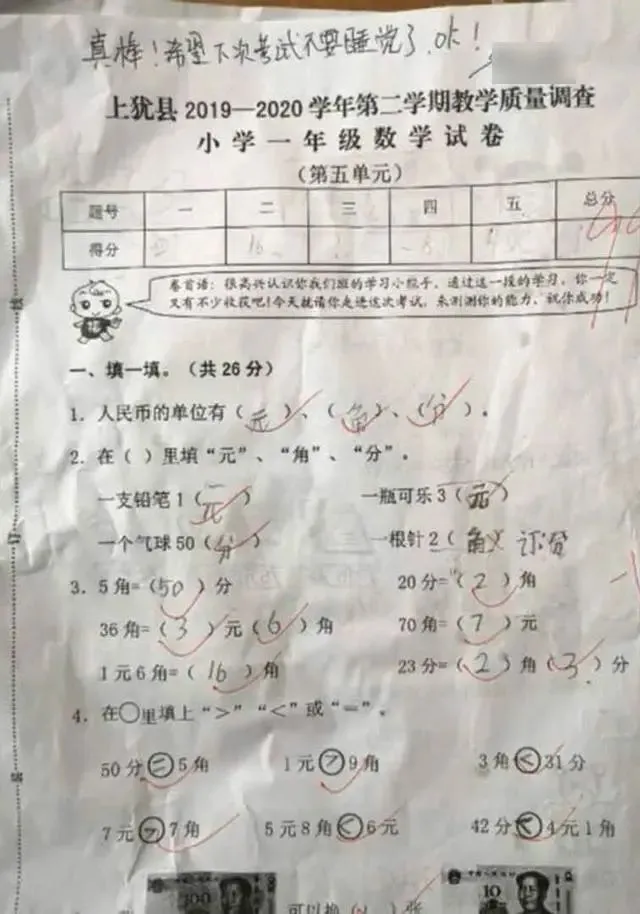 真棒！希望下次考试不要睡觉了，ok！
上犹县2019—2020学年第二学期教学质量调查
小学一年级数学试卷
（第五单元）
题号 一 二 三 四 五 总分
得分
卷首语：很高兴认识你我们班的学习小能手，通过这一段的学习，你一定
又有不少收获吧！今天就请你走进这次考试，来测测你的能力，祝你成功！
一、填一填。（共26分）
1．人民币的单位有（元）、（角）、（分）。
2．在（ ）里填“元”、“角”、“分”。
一支铅笔1（元） 一瓶可乐3（元）
一个气球50（分） 一根针2（角）
3．5角=（50）分 20分=（2）角
36角=（3）元（6）角 70角=（7）元
1元6角=（16）角 23分=（2）角（3）分
4．在○里填上“>”“<”或“=”。
50分=5角 1元>9角 3角<31分
7元>7角 5元8角<6元 42分<4元1角
100 10
可以换（ ）张